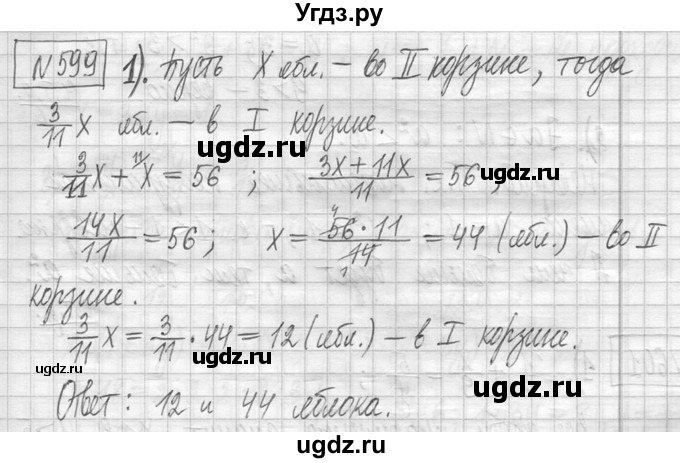 Угдз.ру
№599 1). Пусть x ябл. – во II корзине, тогда
3/11 x ябл. – в I корзине.
ugdz.ru
ugdz.ru
3/11 x + 11\x = 56 ; (3x + 11x)/11 = 56;
ugdz.ru
14x/11 = 56; x = 56·11/14 = 44 (ябл.) – во II
4
1
ugdz.ru
ugdz.ru
корзине.
3/11 x = 3/11 · 44 = 12 (ябл.) – в I корзине.
ugdz.ru
ugdz.ru
ugdz.ru
Ответ: 12 и 44 яблока.
ugdz.ru
ugdz.ru